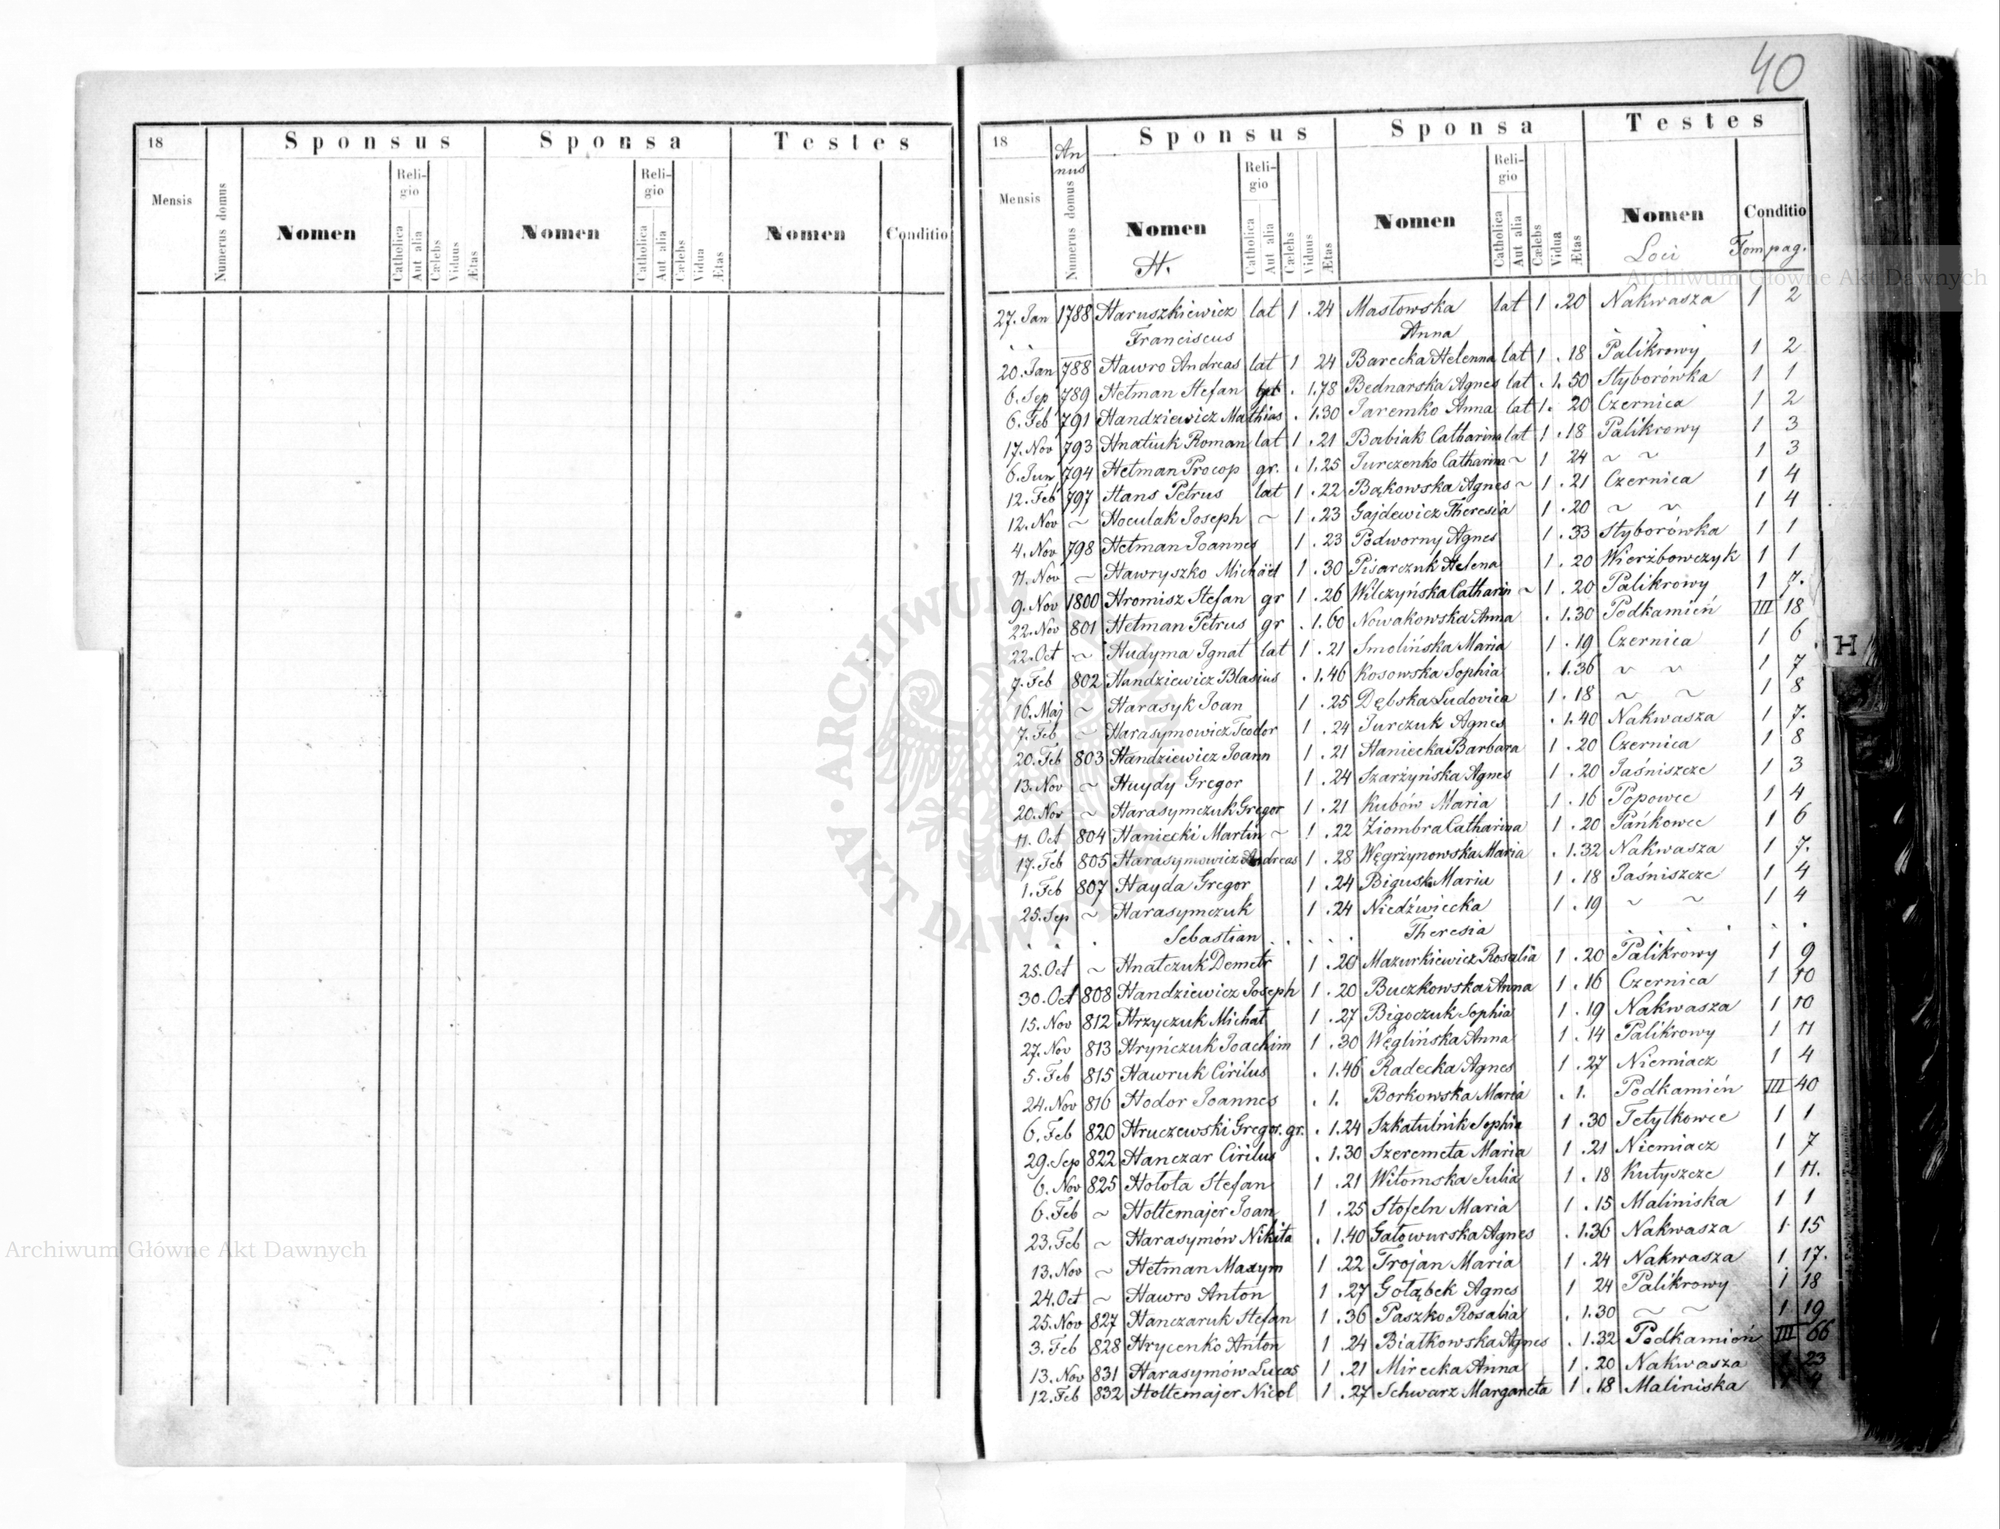 40
18 Sponsus Sponsa Testes
Mensis Numerus domus Nomen Religio Catholica Aut alia Cælebs Viduus Ætas Nomen Religio Catholica Aut alia Cælebs Vidua Ætas Nomen Conditio
18 Annus Sponsus Sponsa Testes
Mensis Numerus domus Nomen Religio Catholica Aut alia Cælebs Viduus Ætas Nomen Religio Catholica Aut alia Cælebs Vidua Ætas Nomen Conditio
H. Loci Tom pag.
27. Jan 1788 Haruszkiewicz lat 1 . 24 Masłowska lat 1 . 20 Nakwasza 1 2
Franciscus Anna
20. Jan 788 Hawro Andreas lat 1 24 Barecka Helenna lat 1 . 18 Palikrowy 1 2
6. Sep 789 Hetman Stefan . 1. 78 Bednarska Agnes lat . 1. 50 Styborówka 1 1
6. Feb 791 Handziewicz Mathias . 1. 30 Jaremko Anna lat 1. 20 Czernica 1 2
17. Nov 793 Hnatiuk Roman lat 1 . 21 Babiak Catharina lat 1 . 18 Palikrowy 1 3
6. Jun 794 Hetman Procop gr. . 1. 25 Jurczenko Catharina ~ 1 24 ~ ~ 1 3
12. Feb 797 Hans Petrus lat 1 . 22 Bąkowska Agnes ~ 1 . 21 Czernica 1 4
12. Nov ~ Hoculak Joseph ~ 1 . 23 Gajdewicz Theresia 1 . 20 ~ ~ 1 4
4. Nov 798 Hetman Joannes 1 . 23 Podworny Agnes 1 . 33 Styborówka 1 1
11. Nov ~ Hawryszko Michael 1 . 30 Pisarczuk Helena 1 . 20 Wierzbowczyk 1 1
9. Nov 1800 Hromisz Stefan gr 1 . 26 Wilczyńska Catharin ~ 1 . 20 Palikrowy 1 7.
22. Nov 801 Hetman Petrus gr . 1. 60 Nowakowska Anna . 1. 30 Podkamień III 18
22. Oct ~ Hudyma Ignat lat 1 . 21 Smolińska Maria 1 . 19 Czernica 1 6
H
7. Feb 802 Handziewicz Blasius . 1. 46 Kosowska Sophia . 1. 36 ~ ~ 1 7
16. Maj ~ Harasyk Joan 1 . 25 Dębska Ludovica 1 . 18 ~ ~ 1 8
7. Feb ~ Harasymowicz Teodor 1 . 24 Jurczuk Agnes . 1. 40 Nakwasza 1 7.
20. Feb 803 Handziewicz Joann 1 . 21 Haniecka Barbara 1 . 20 Czernica 1 8
13. Nov ~ Huydy Gregor 1 . 24 Szarżyńska Agnes 1 . 20 Jaśniszcze 1 3
20. Nov ~ Harasymczuk Gregor 1 . 21 Kubów Maria 1 . 16 Popowce 1 4
11. Oct 804 Haniecki Martin ~ 1 . 22 Ziombra Catharina 1 . 20 Pańkowce 1 6
17. Feb 805 Harasymowicz Andreas 1 . 28 Węgrżynowska Maria . 1. 32 Nakwasza 1 7.
1. Feb 807 Hayda Gregor 1 . 24 Maria 1 . 18 Jaśniszcze 1 4
25. Sep ~ Harasymczuk 1 . 24 Niedźwiecka 1 . 19 ~ ~ 1 4
Sebastian Theresia
25. Oct ~ Hnatczuk Demetr 1 . 20 Mazurkiewicz Rosalia 1 . 20 Palikrowy 1 9
30. Oct 808 Handziewicz Joseph 1 . 20 Buczkowska Anna 1 . 16 Czernica 1 10
15. Nov 812 Hrzyczuk Michał 1 . 27 Bigoczuk Sophia 1 . 19 Nakwasza 1 10
27. Nov 813 Hryńczuk Joachim 1 . 30 Węglińska Anna 1 . 14 Palikrowy 1 11
5. Feb 815 Hawruk Cirilus . 1. 46 Radecka Agnes 1 . 27 Niemiacz 1 4
24. Nov 816 Hodor Joannes . 1. Borkowska Maria . 1. Podkamień III 40
6. Feb 820 Hruczewski Gregor. gr. . 1. 24 Szkatulnik Sophia 1 . 30 Tetylkowce 1 1
29. Sep 822 Hanczar Cirilus . 1. 30 Szeremeta Maria 1 . 21 Niemiacz 1 7
6. Nov 825 Hołota Stefan 1 . 21 Witomska Julia 1 . 18 Kutyszcze 1 11.
6. Feb ~ Holtemajer Joan 1 . 25 Stofeln Maria 1 . 15 Maliniska 1 1
23. Feb ~ Harasymów Nikita . 1. 40 Gatowurska Agnes . 1. 36 Nakwasza 1 15
13. Nov ~ Hetman Maxym 1 . 22 Trojan Maria 1 . 24 Nakwasza 1 17.
24. Oct ~ Hawro Anton 1 . 27 Gołąbek Agnes 1 24 Palikrowy 1 18
25. Nov 827 Hanczaruk Stefan 1 . 36 Paszko Rosalia . 1. 30 ~ ~ 1 19
3. Feb 828 Hrycenko Anton 1 . 24 Białkowska Agnes . 1. 32 Podkamień III 66
13. Nov 831 Harasymów Lucas 1 . 21 Mirecka Anna 1 . 20 Nakwasza 1 23
12. Feb 832 Holtemajer Nicol 1 . 27 Schwarz Margareta 1 . 18 Maliniska
Archiwum Główne Akt Dawnych
Archiwum Główne Akt Dawnych
ARCHIWUM AKT DAWNYCH